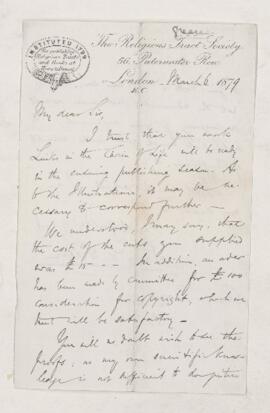 INSTITUTED 1799
The Religious Tract Society
56, Paternoster Row
London March 6 1879
E.C.
My dear Sir,
I trust that your work
Links in the Chain of Life will be ready
in the ensuing publishing season. As
to the Illustrations, it may be ne-
cessary to correspond further –
We understood, I may say, that
the cost of the cuts you supplied
was £15 –– In addition, an order
has been made by Committee for £100
consideration for copyright, which we
trust will be satisfactory –
You will no doubt wish to see the
proofs; as my own scientific know-
ledge is not sufficient to